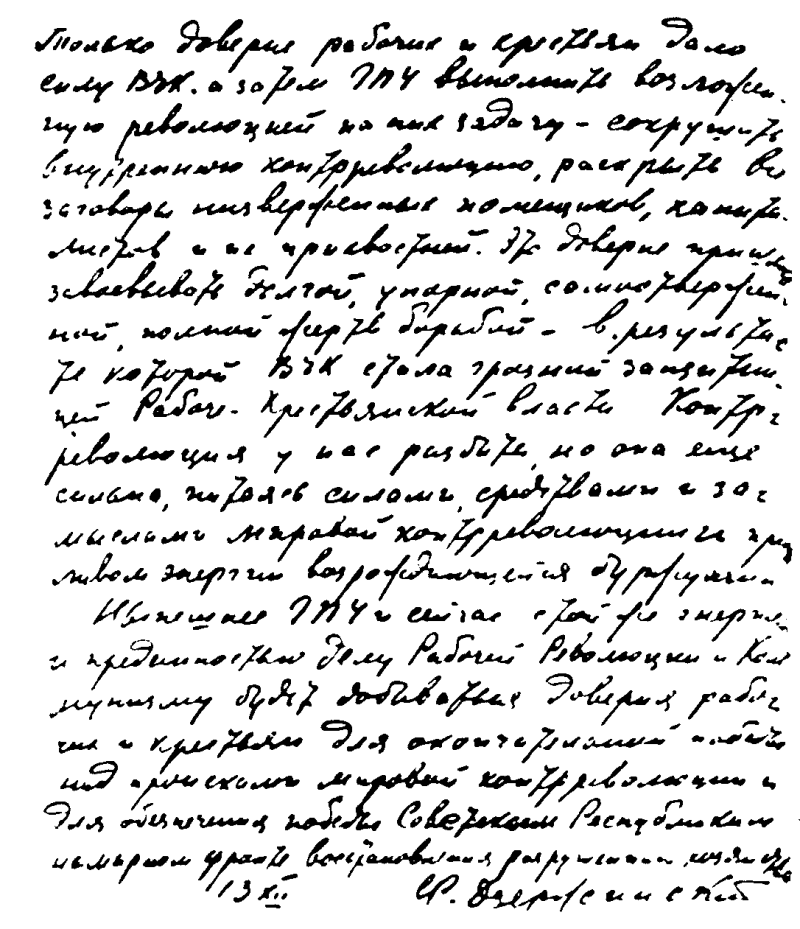 Только доверие рабочих и крестьян дало
силу ВЧК. а затем ГПУ выполнить возложен-
ную революцией на них задачу – сокрушить
внутреннюю контрреволюцию, раскрыть все
заговоры низверженных помещиков, капита-
листов и их прихвостней. Это доверие пришлось
завоевывать долгой, упорной, самоотвержен-
ной, полной жертв борьбой – в результа
те которой ВЧК стала грозной защитни-
цей Рабоче-Крестьянской власти Контр-
революция у нас разбита, но она еще
сильна, питаясь силами, средствами и за-
мыслами мировой контрреволюции и при
ливом энергии возрождающейся буржуазии
Нынешнее ГПУ и сейчас с той же энергией
и преданностью делу Рабочей Революции и Ком
мунизму будет добиваться доверия рабо-
чих и крестьян для окончательной победы
над происками мировой контрреволюции и
для обеспечения победы Советским Республикам
на мирном фронте восстановления разрушенного хозяйства
13 XII Ф. Дзержинский